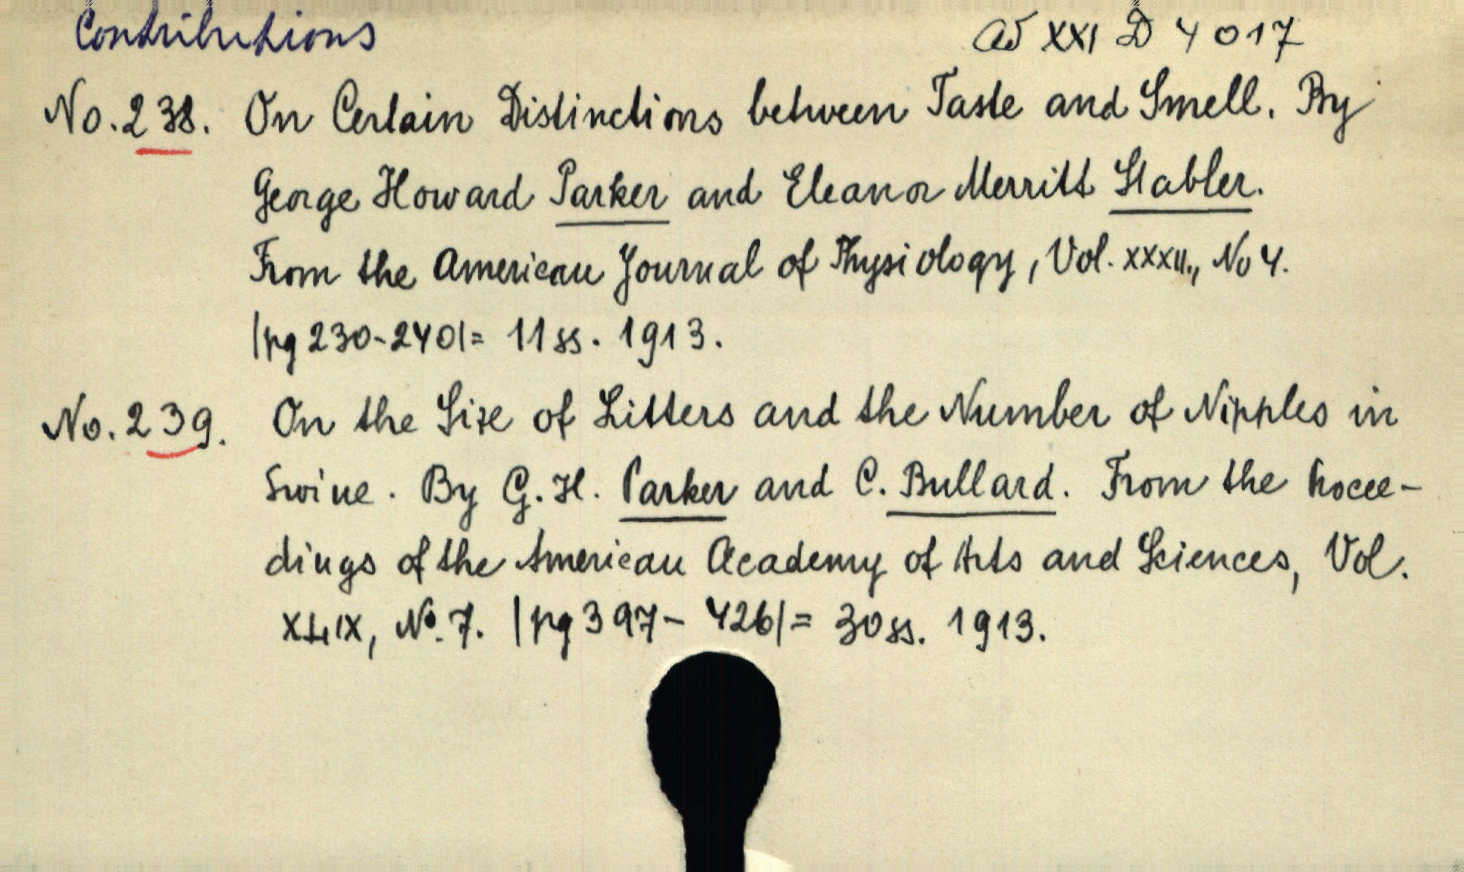 Contributions ad XXI D 4017
No. 238. On Certain Distinctions between Taste and Smell. By
George Howard Parker and Eleanor Merritt Stabler.
From the American Journal of Physiology, Vol. XXXII., No 4.
|pg 230-240|= 11 ss. 1913.
No. 239. On the Size of Litters and the Number of Nipples in
Swine. By G. H. Parker and C. Bullard. From the Procee-
dings of the American Academy of Arts and Sciences, Vol.
XLIX, No. 7. |pg 397-426|= 30 ss. 1913.